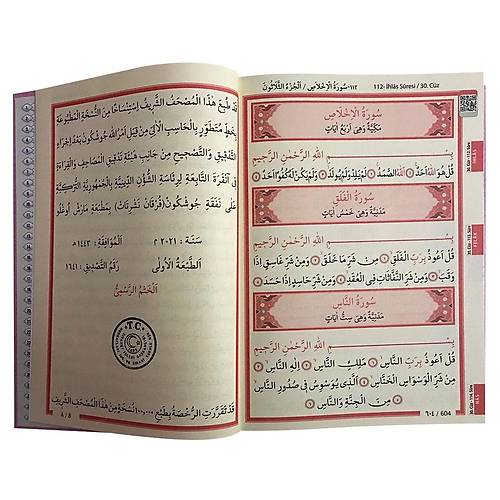 ١١٢-سُورَةُ الْاِخْلَاصِ / اَلْجُزْءُ الثَّلَاثُونَ
112- İhlâs Sûresi / 30. Cüz
سُورَةُ الْاِخْلَاصِ
مَكِّيَّةٌ وَهِيَ اَرْبَعُ اٰيَاتٍ
بِسْمِ اللّٰهِ الرَّحْمٰنِ الرَّحِيمِ
قُلْ هُوَ اللّٰهُ اَحَدٌ ۝ اَللّٰهُ الصَّمَدُ ۝ لَمْ يَلِدْ وَلَمْ يُولَدْ ۝ وَلَمْ يَكُنْ لَهُ كُفُوًا اَحَدٌ ۝
سُورَةُ الْفَلَقِ
مَدَنِيَّةٌ وَهِيَ خَمْسُ اٰيَاتٍ
بِسْمِ اللّٰهِ الرَّحْمٰنِ الرَّحِيمِ
قُلْ اَعُوذُ بِرَبِّ الْفَلَقِ ۝ مِنْ شَرِّ مَا خَلَقَ ۝ وَمِنْ شَرِّ غَاسِقٍ اِذَا
وَقَبَ ۝ وَمِنْ شَرِّ النَّفَّاثَاتِ فِي الْعُقَدِ ۝ وَمِنْ شَرِّ حَاسِدٍ اِذَا حَسَدَ ۝
سُورَةُ النَّاسِ
مَدَنِيَّةٌ وَهِيَ سِتُّ اٰيَاتٍ
بِسْمِ اللّٰهِ الرَّحْمٰنِ الرَّحِيمِ
قُلْ اَعُوذُ بِرَبِّ النَّاسِ ۝ مَلِكِ النَّاسِ ۝ اِلٰهِ النَّاسِ ۝
مِنْ شَرِّ الْوَسْوَاسِ الْخَنَّاسِ ۝ اَلَّذِي يُوَسْوِسُ فِي صُدُورِ النَّاسِ
۝ مِنَ الْجِنَّةِ وَالنَّاسِ ۝
٦٠٤ / 604
30. Cüz - 112. Sûre
30. Cüz - 113. Sûre
30. Cüz - 114. Sûre
قَدْ طُبِعَ هٰذَا الْمُصْحَفُ الشَّرِيفُ اِسْتِنْسَاخًا مِنَ النُّسْخَةِ الْمَطْبُوعَةِ
بِخَطٍّ مُتَطَوِّرٍ بِالْحَاسِبِ الْاٰلِيِّ مِنْ قِبَلِ اَمْرُ اللّٰهِ جُوشْكُونْ بَعْدَ اِجْرَاءِ
التَّدْقِيقِ وَالتَّصْحِيحِ مِنْ جَانِبِ هَيْئَةِ تَدْقِيقِ الْمَصَاحِفِ وَالْقِرَاءَةِ
فِي اَنْقَرَةَ التَّابِعَةِ لِرِئَاسَةِ الشُّؤُونِ الدِّينِيَّةِ بِالْجُمْهُورِيَّةِ التُّرْكِيَّةِ
عَلٰى نَفَقَةِ جُوشْكُونْ (فُرْقَانْ نَشْرِيَاتْ) بِمَطْبَعَةِ مَارَشْ اُوغْلُو
سَنَةَ: ٢٠٢١ م
اَلْمُوَافِقَةِ: ١٤٤٢هـ
اَلطَّبْعَةُ الْاُولٰى
رَقْمُ التَّصْدِيقِ: ١٦٤١
اَلْخَتْمُ الرَّسْمِيُّ
T.C.
قَدْ تَقَرَّرَتِ الرُّخْصَةُ بِطَبْعِ ١٠٠,٠٠٠ نُسْخَةٍ مِنْ هٰذَا الْمُصْحَفِ الشَّرِيفِ
٨ / 8